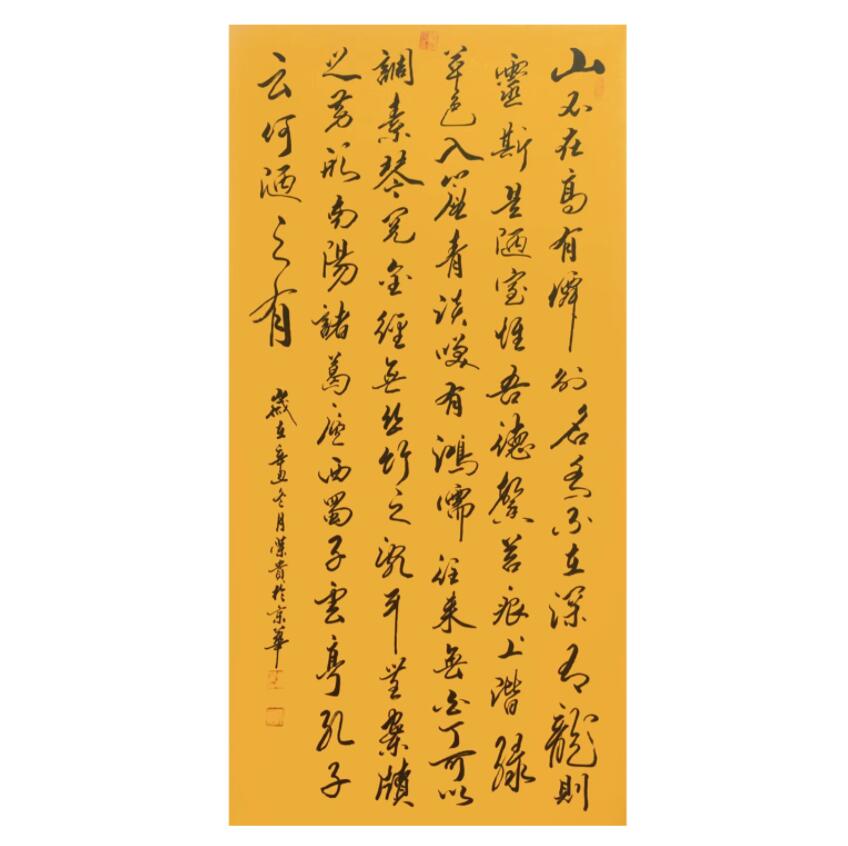 山不在高有僊則名水不在深有龍則
靈斯是陋室惟吾德馨苔痕上階緑
草色入簾青談咲有鴻儒往来無白丁可以
調素琴閲金經無絲竹之亂耳無案牘
之勞形南陽諸葛廬西蜀子雲亭孔子
云何陋之有
歲在辛丑冬月貴於京華